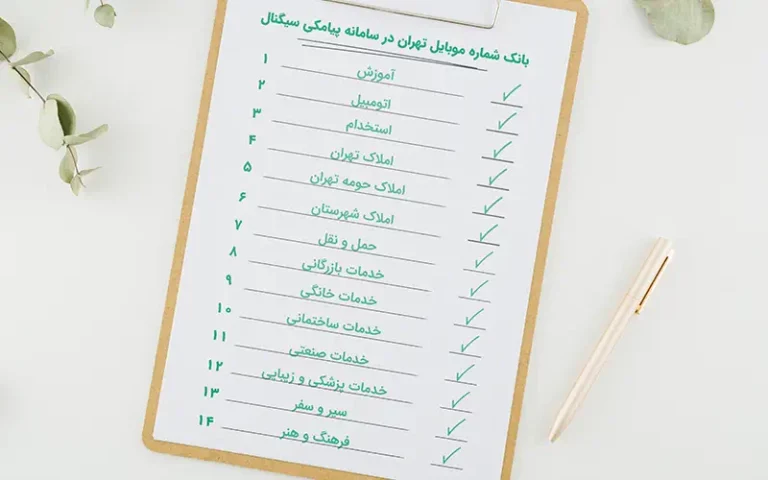 بانک شماره موبایل تهران در سامانه پیامکی سیگنال
۱ آموزش
۲ اتومبیل
۳ استخدام
۴ املاک تهران
۵ املاک حومه تهران
۶ املاک شهرستان
۷ حمل و نقل
۸ خدمات بازرگانی
۹ خدمات خانگی
۱۰ خدمات ساختمانی
۱۱ خدمات صنعتی
۱۲ خدمات پزشکی و زیبایی
۱۳ سیر و سفر
۱۴ فرهنگ و هنر